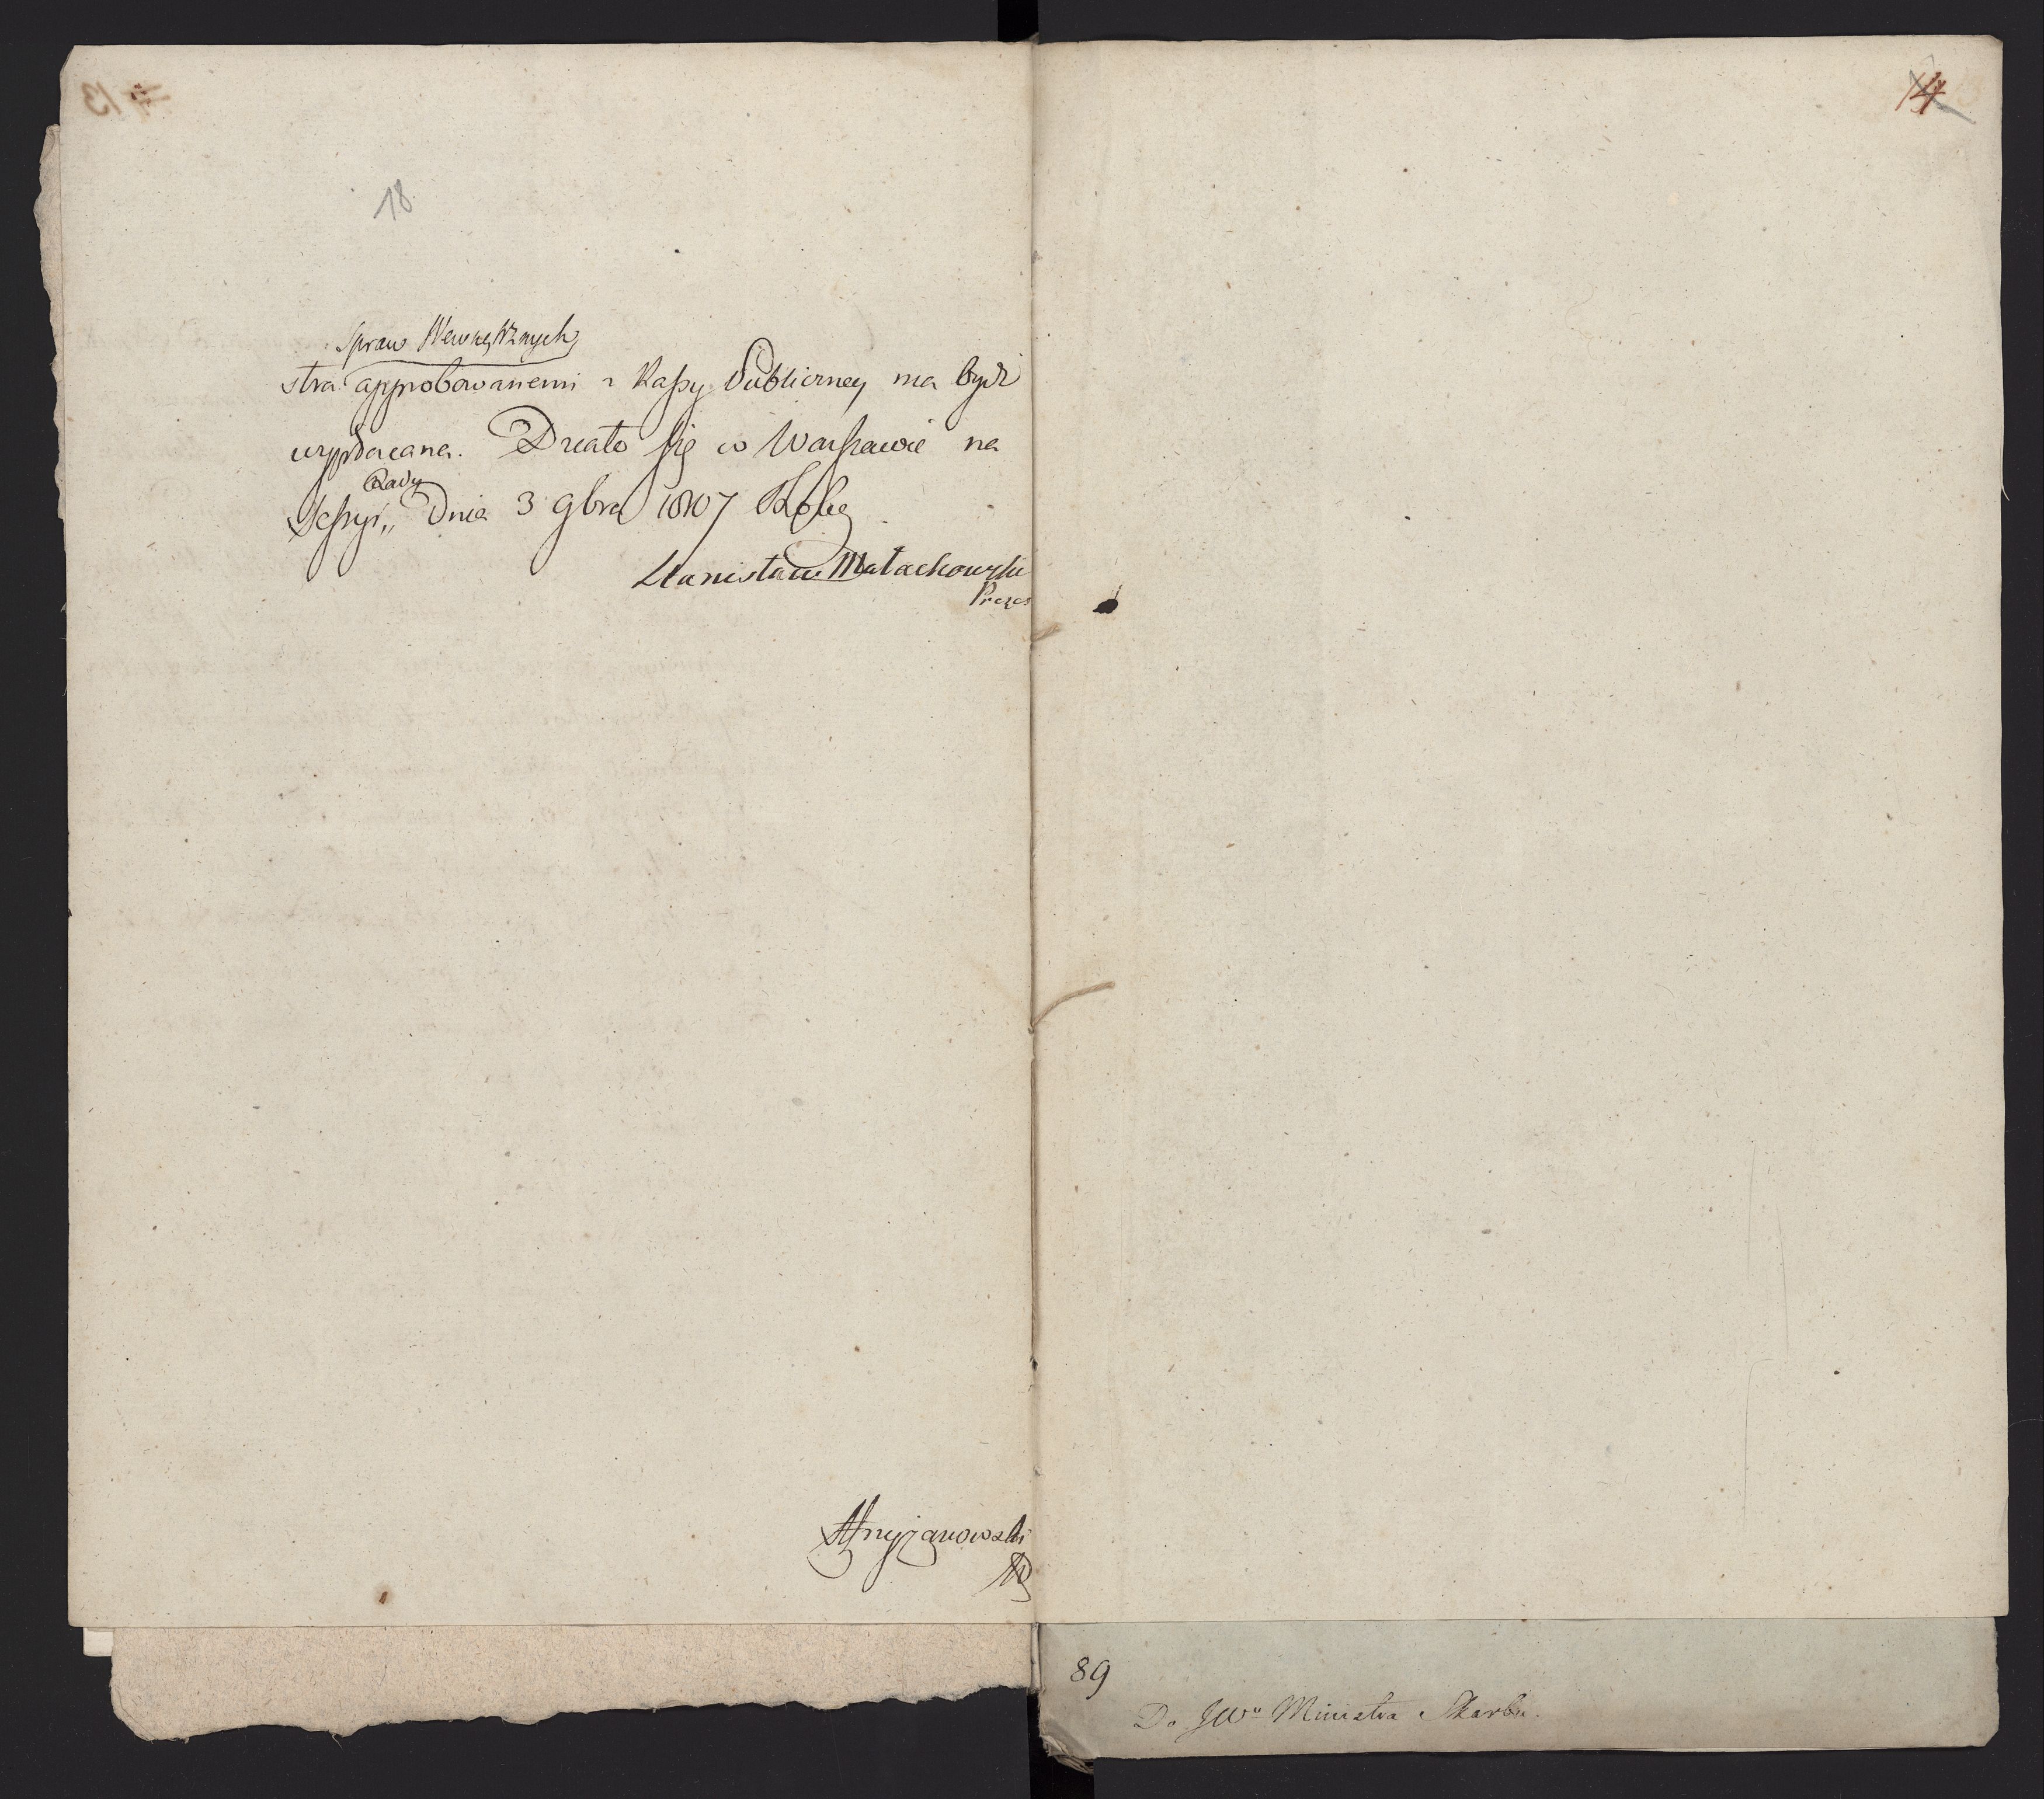 18
Spraw Wewnętrznych
stra approbowanemi z Kassy Publiczney ma bydź
wypłacana. Działo się w Warszawie na
Rady
Sessyi,, Dnia 3 9bra 1807 Roku
Stanisław Małachowski
Prezes
Krzyżanowski
14
89
Do JWo Ministra Skarbu.